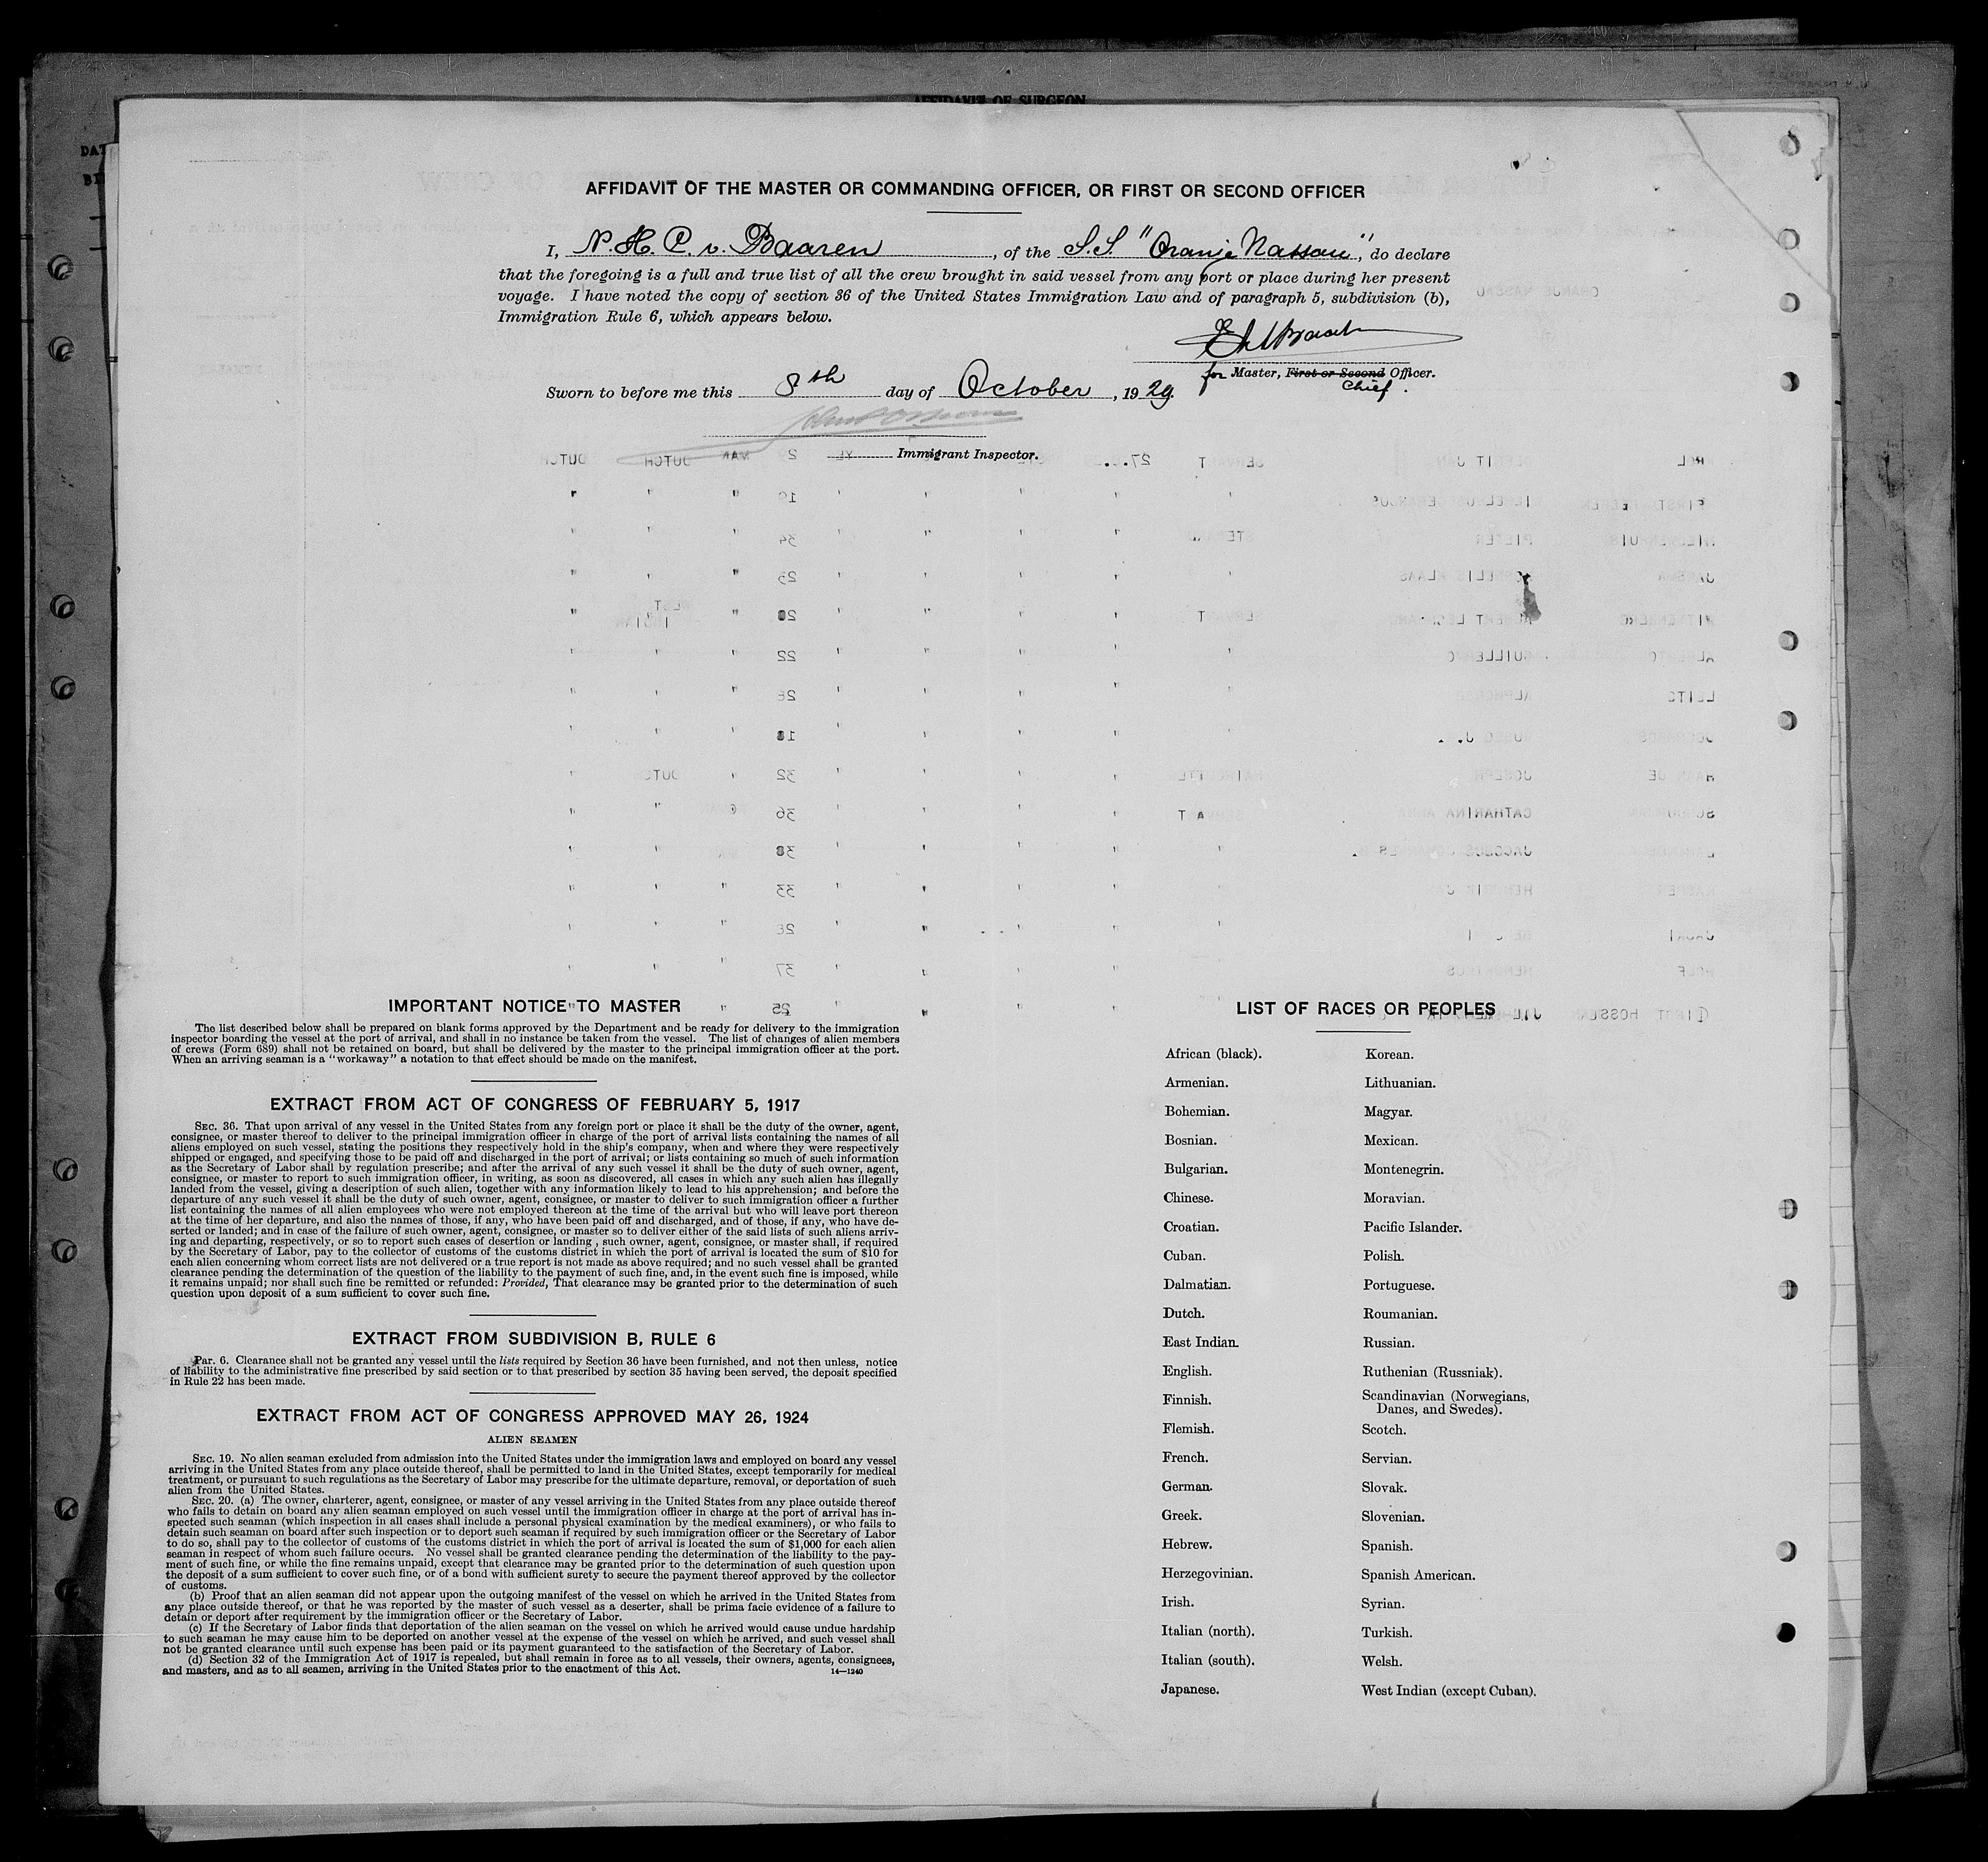 AFFIDAVIT OF SURGEON
AFFIDAVIT OF THE MASTER OR COMMANDING OFFICER, OR FIRST OR SECOND OFFICER
I, N. H. C. v. Baaren, of the S.S. "Oranje Nassau", do declare
that the foregoing is a full and true list of all the crew brought in said vessel from any port or place during her present
voyage. I have noted the copy of section 36 of the United States Immigration Law and of paragraph 5, subdivision (b),
Immigration Rule 6, which appears below.
for Master, First or Second Officer.
Chief.
Sworn to before me this 8th day of October, 1929.
Immigrant Inspector.
IMPORTANT NOTICE TO MASTER
The list described below shall be prepared on blank forms approved by the Department and be ready for delivery to the immigration
inspector boarding the vessel at the port of arrival, and shall in no instance be taken from the vessel. The list of changes of alien members
of crews (Form 689) shall not be retained on board, but shall be delivered by the master to the principal immigration officer at the port.
When an arriving seaman is a "workaway" a notation to that effect should be made on the manifest.
EXTRACT FROM ACT OF CONGRESS OF FEBRUARY 5, 1917
SEC. 36. That upon arrival of any vessel in the United States from any foreign port or place it shall be the duty of the owner, agent,
consignee, or master thereof to deliver to the principal immigration officer in charge of the port of arrival lists containing the names of all
aliens employed on such vessel, stating the positions they respectively hold in the ship's company, when and where they were respectively
shipped or engaged, and specifying those to be paid off and discharged in the port of arrival; or lists containing so much of such information
as the Secretary of Labor shall by regulation prescribe; and after the arrival of any such vessel it shall be the duty of such owner, agent,
consignee, or master to report to such immigration officer, in writing, as soon as discovered, all cases in which any such alien has illegally
landed from the vessel, giving a description of such alien, together with any information likely to lead to his apprehension; and before the
departure of any such vessel it shall be the duty of such owner, agent, consignee, or master to deliver to such immigration officer a further
list containing the names of all alien employees who were not employed thereon at the time of the arrival but who will leave port thereon
at the time of her departure, and also the names of those, if any, who have been paid off and discharged, and of those, if any, who have de-
serted or landed; and in case of the failure of such owner, agent, consignee, or master so to deliver either of the said lists of such aliens arriv-
ing and departing, respectively, or so to report such cases of desertion or landing , such owner, agent, consignee, or master shall, if required
by the Secretary of Labor, pay to the collector of customs of the customs district in which the port of arrival is located the sum of $10 for
each alien concerning whom correct lists are not delivered or a true report is not made as above required; and no such vessel shall be granted
clearance pending the determination of the question of the liability to the payment of such fine, and, in the event such fine is imposed, while
it remains unpaid; nor shall such fine be remitted or refunded: Provided, That clearance may be granted prior to the determination of such
question upon deposit of a sum sufficient to cover such fine.
EXTRACT FROM SUBDIVISION B, RULE 6
Par. 6. Clearance shall not be granted any vessel until the lists required by Section 36 have been furnished, and not then unless, notice
of liability to the administrative fine prescribed by said section or to that prescribed by section 35 having been served, the deposit specified
in Rule 22 has been made.
EXTRACT FROM ACT OF CONGRESS APPROVED MAY 26, 1924
ALIEN SEAMEN
SEC. 19. No alien seaman excluded from admission into the United States under the immigration laws and employed on board any vessel
arriving in the United States from any place outside thereof, shall be permitted to land in the United States, except temporarily for medical
treatment, or pursuant to such regulations as the Secretary of Labor may prescribe for the ultimate departure, removal, or deportation of such
alien from the United States.
SEC. 20. (a) The owner, charterer, agent, consignee, or master of any vessel arriving in the United States from any place outside thereof
who fails to detain on board any alien seaman employed on such vessel until the immigration officer in charge at the port of arrival has in-
spected such seaman (which inspection in all cases shall include a personal physical examination by the medical examiners), or who fails to
detain such seaman on board after such inspection or to deport such seaman if required by such immigration officer or the Secretary of Labor
to do so, shall pay to the collector of customs of the customs district in which the port of arrival is located the sum of $1,000 for each alien
seaman in respect of whom such failure occurs. No vessel shall be granted clearance pending the determination of the liability to the pay-
ment of such fine, or while the fine remains unpaid, except that clearance may be granted prior to the determination of such question upon
the deposit of a sum sufficient to cover such fine, or of a bond with sufficient surety to secure the payment thereof approved by the collector
of customs.
(b) Proof that an alien seaman did not appear upon the outgoing manifest of the vessel on which he arrived in the United States from
any place outside thereof, or that he was reported by the master of such vessel as a deserter, shall be prima facie evidence of a failure to
detain or deport after requirement by the immigration officer or the Secretary of Labor.
(c) If the Secretary of Labor finds that deportation of the alien seaman on the vessel on which he arrived would cause undue hardship
to such seaman he may cause him to be deported on another vessel at the expense of the vessel on which he arrived, and such vessel shall
not be granted clearance until such expense has been paid or its payment guaranteed to the satisfaction of the Secretary of Labor.
(d) Section 32 of the Immigration Act of 1917 is repealed, but shall remain in force as to all vessels, their owners, agents, consignees,
and masters, and as to all seamen, arriving in the United States prior to the enactment of this Act.
14—1240
LIST OF RACES OR PEOPLES
African (black).
Armenian.
Bohemian.
Bosnian.
Bulgarian.
Chinese.
Croatian.
Cuban.
Dalmatian.
Dutch.
East Indian.
English.
Finnish.
Flemish.
French.
German.
Greek.
Hebrew.
Herzegovinian.
Irish.
Italian (north).
Italian (south).
Japanese.
Korean.
Lithuanian.
Magyar.
Mexican.
Montenegrin.
Moravian.
Pacific Islander.
Polish.
Portuguese.
Roumanian.
Russian.
Ruthenian (Russniak).
Scandinavian (Norwegians,
Danes, and Swedes).
Scotch.
Servian.
Slovak.
Slovenian.
Spanish.
Spanish American.
Syrian.
Turkish.
Welsh.
West Indian (except Cuban).